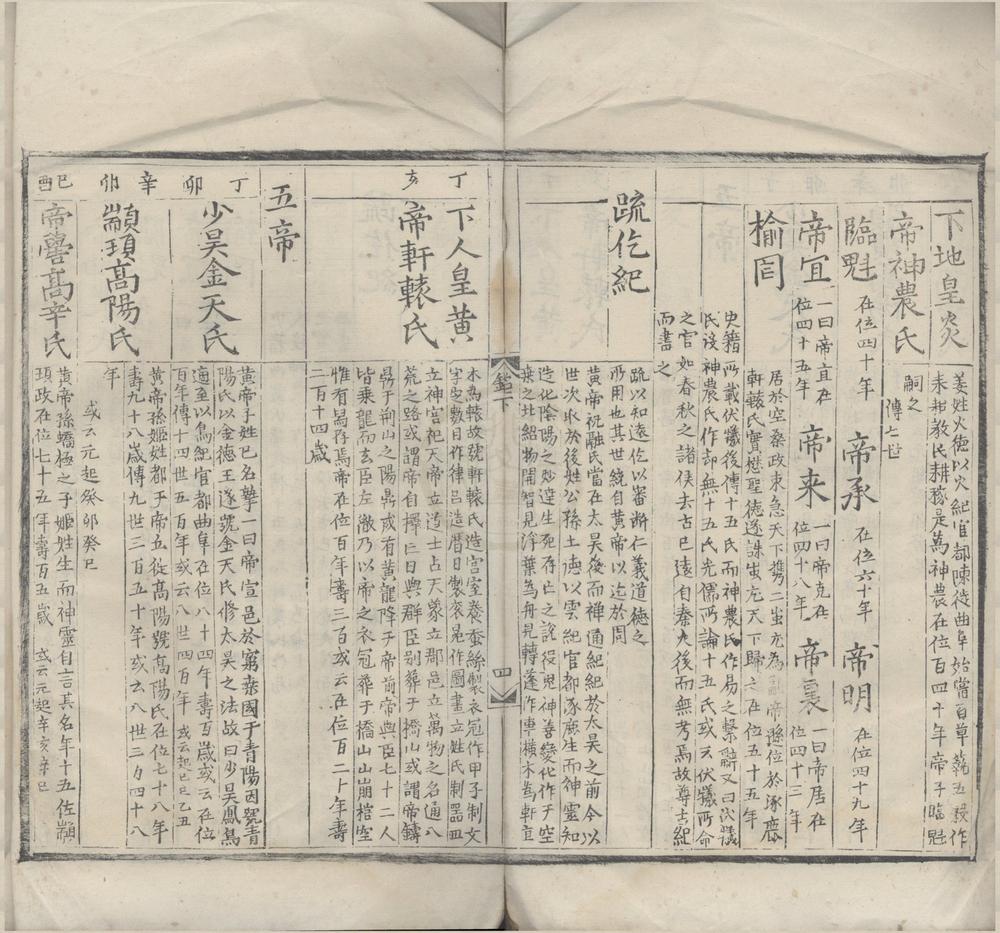 下地皇炎
帝神農氏
姜姓火德以火紀官都陳徙曲阜始嘗百草藝五穀作
耒耜教民耕稼是為神農在位百四十年帝子臨魁
嗣之
傳七世
臨魁
在位四十年
帝承
在位六十年
帝明
在位四十九年
帝宜
一曰帝直在
位四十五年
帝来
一曰帝克在
位四十八年
帝裏
一曰帝居在
位四十三年
榆罔
居於空桑政束急天下携二蚩尤為帝遜位於涿鹿
軒轅氏實懋聖德遂誅蚩尤天下歸之在位五十五年
史籍所載伏犧後傳十五氏而神農氏作易之繫辭又曰伏犧
氏沒神農氏作却無十五氏先儒所論十五氏或云伏犧所命
之官如春秋之諸侯去古已遠自秦火後而無考焉故尊古紀
而書之
疏仡紀
疏以知遠仡以審斷仁義道德之
所用也其世統自黃帝以迄於周
黃帝祝融氏當在太昊後而禪通紀紀於太昊之前今以
世次収於後姓公孫土德以雲紀官都涿鹿生而神靈知
造化陰陽之妙達生死存亡之說役鬼神善變化作于空
桑之北紹物開智見浮葉為舟見轉蓬作車橫木為軒直
丁
亥
下人皇黃
帝軒轅氏
木為轅故號軒轅氏造宮室養蚕絲製衣冠作甲子制文
字定數目作律呂造曆日製衮冕作圖畫立姓氏制器皿
立神宮祀天帝立道士占天象立郡邑立萬物之名通八
荒之路或謂帝自擇亡日與群臣别葬于橋山或謂帝鑄
鼎于荊山之陽鼎成有黃龍降于帝前帝與臣七十二人
皆乗龍而去臣左徹乃以帝之衣冠葬于橋山山崩棺空
惟有舄存焉帝在位百年壽三百或云在位百二十年壽
二百十四歲
五帝
丁
卯
少昊金天氏
黃帝子姓已名摯一曰帝宣邑於窮桑國于青陽因號青
陽氏以金德王遂號金天氏修太昊之法故曰少昊鳳鳥
適至以鳥紀官都曲阜在位八十四年壽百歲或云在位
百年傳十四世五百年或云八世四百年
或云起己巳乙丑
辛
卯
顓頊高陽氏
黃帝孫姬姓都于帝丘從高陽號高陽氏在位七十八年
壽九十八歲傳九世三百五十年或云八世三百四十八
年
或云元起癸卯癸巳
己
酉
帝嚳高辛氏
黃帝孫蟜極之子姬姓生而神靈自言其名年十五佐顓
頊政在位七十五年壽百五歲
或云元起辛亥辛巳
鑑下
四